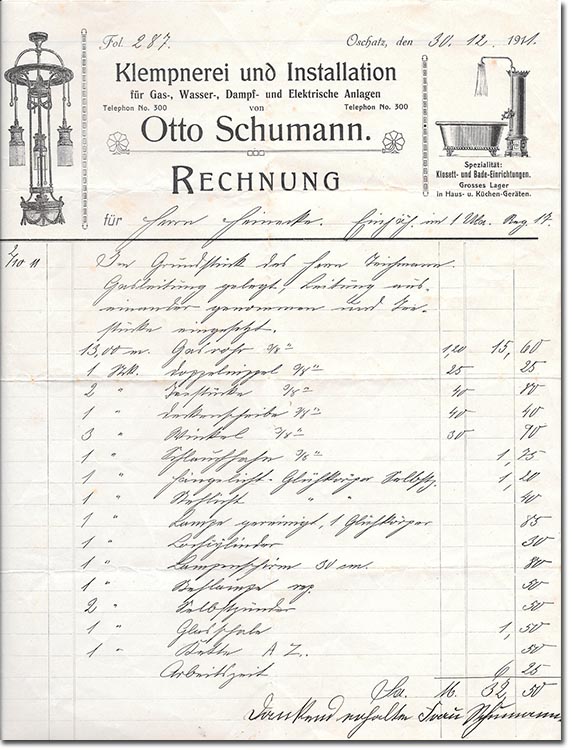 Fol. 287. Oschatz, den 30. 12. 1911.
Klempnerei und Installation
für Gas-, Wasser-, Dampf- und Elektrische Anlagen
Telephon No. 300 von Telephon No. 300
Otto Schumann.
Spezialität:
Klosett- und Bade-Einrichtungen.
Grosses Lager
in Haus- u. Küchen-Geräten.
RECHNUNG
für Herrn Heinecke. Einjäh. im 1 Ula. Reg. 17.
2/10 11 Im Grundstück des Herrn Teichmann.
Gasleitung gelegt, Leitung aus-
einander genommen und Tee-
stücke eingesetzt.
13,00 m. Gasrohr 3/8" 1,20 15,60
1 Stk. Doppelnippel 3/8" 25 25
2 " Teestücke 3/8" 40 80
1 " Deckenscheibe 3/8" 40 40
3 " Winkel 3/8" 30 90
1 " Schlauchhahn 3/8" 1,75
1 " Hängelicht-Glühkörper Selbstz. 1,20
1 " Stehlicht " " 40
1 " Lampe gereinigt, 1 Glühkörper 85
1 " Lochzylinder 30
1 " Lampenschirm 30 cm. 80
1 " Stehlampe rep. 50
2 " Selbstzünder 50
1 " Glasschale 1,50
1 " Kette A Z. 50
Arbeitszeit 6 25
Sa. M. 32,50
Dankend erhalten Frau Schumann.